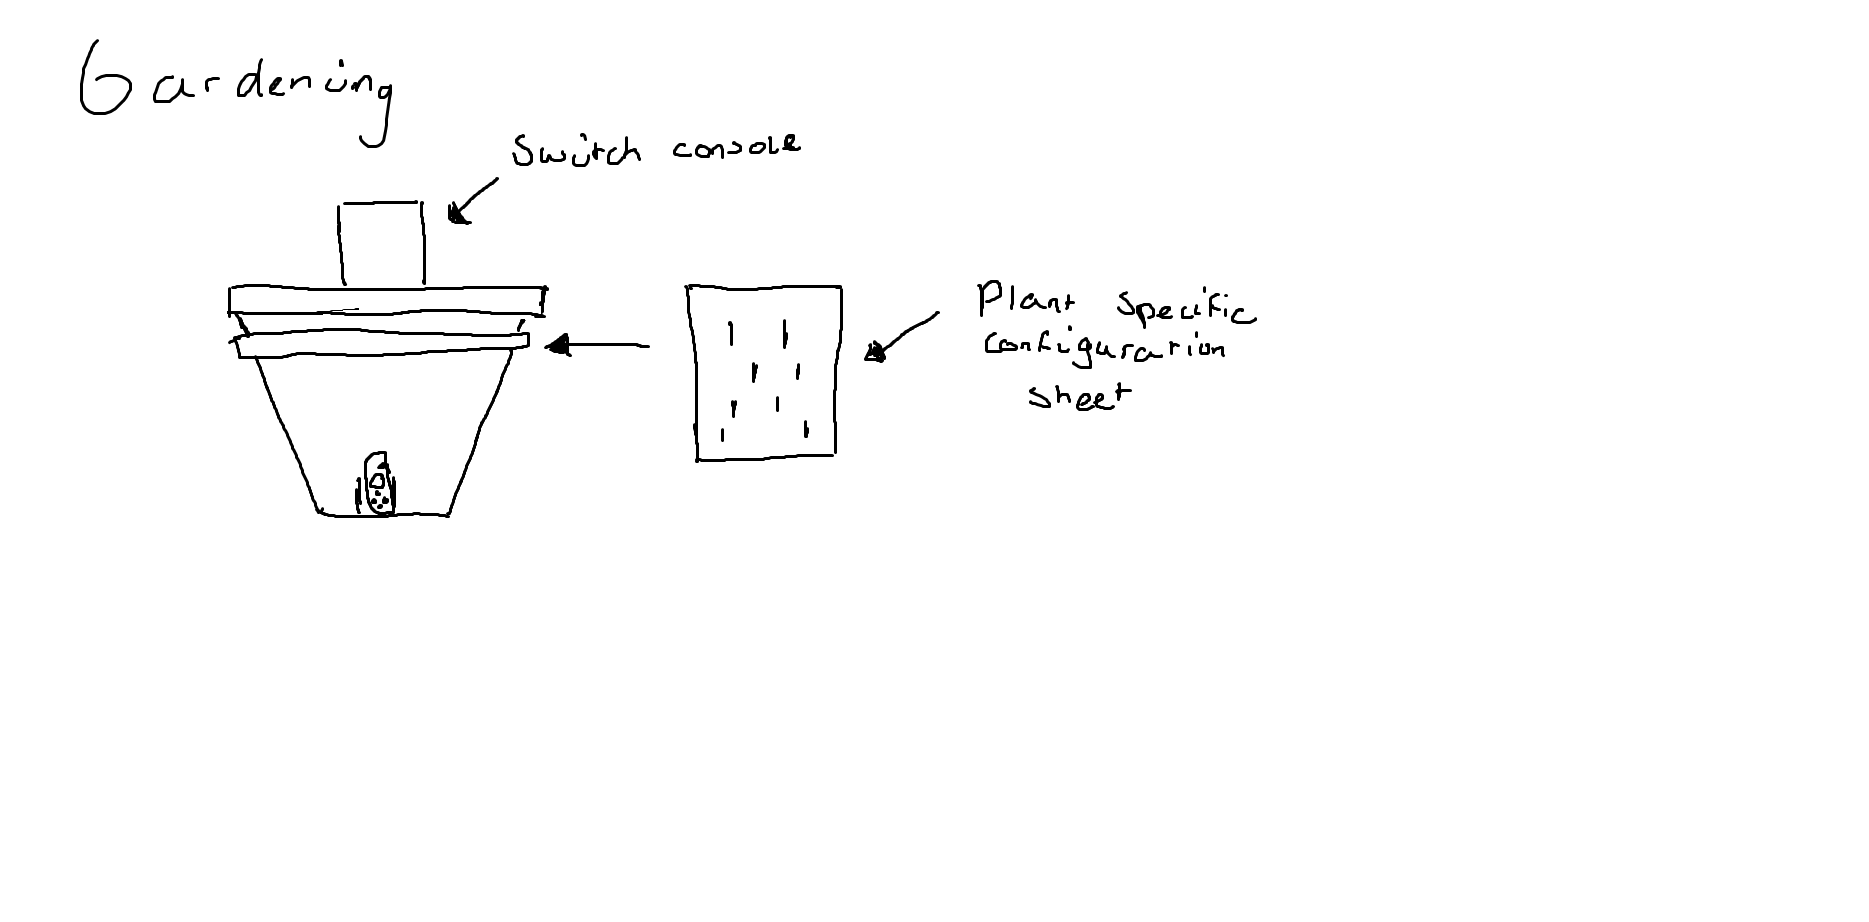 Gardening
Switch console
Plant specific
configuration
sheet